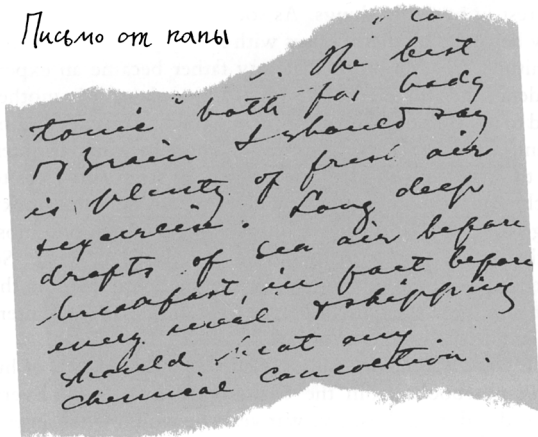 Письмо от папы
. The best
tonic both for body
& Brain I should say
is plenty of fresh air
& exercise. Long deep
drafts of sea air before
breakfast, in fact before
every meal & skipping
should beat any
chemical concoction.